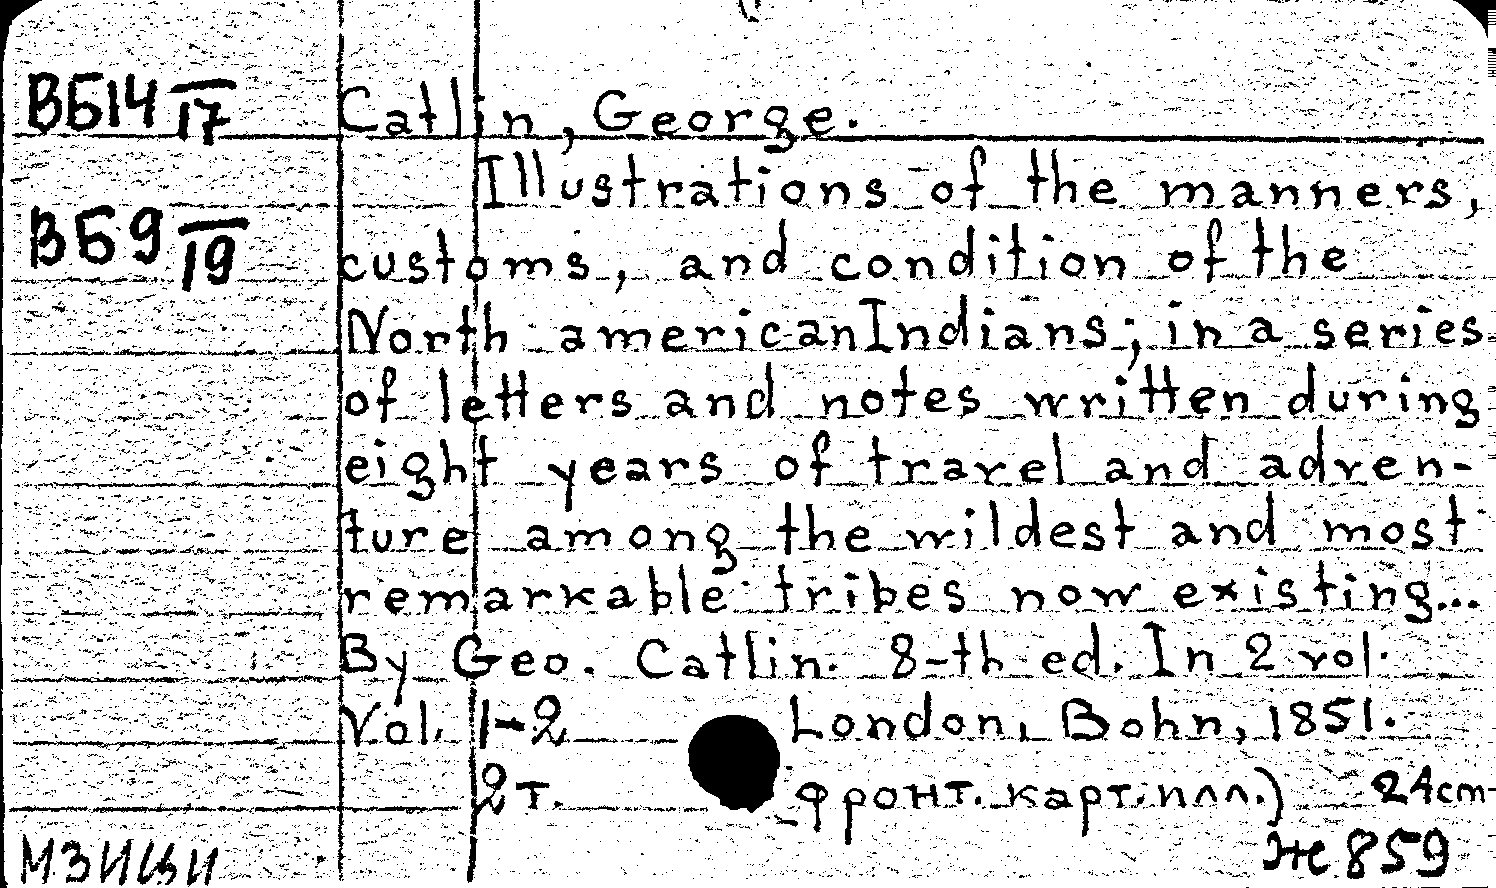 ВБ14 17 Catlin, George.
Illustrations of the manners,
ВБ9 19
customs, and condition of the
North americanIndians; in a series
of letters and notes written during
eight years of travel and adven-
ture among the wildest and most
remarkable tribes now existing...
By Geo. Catlin. 8-th ed. In 2 vol.
Vol. 1-2 London, Bohn, 1851.
2 т. фронт. карт. илл.) 24cm
Ж 859